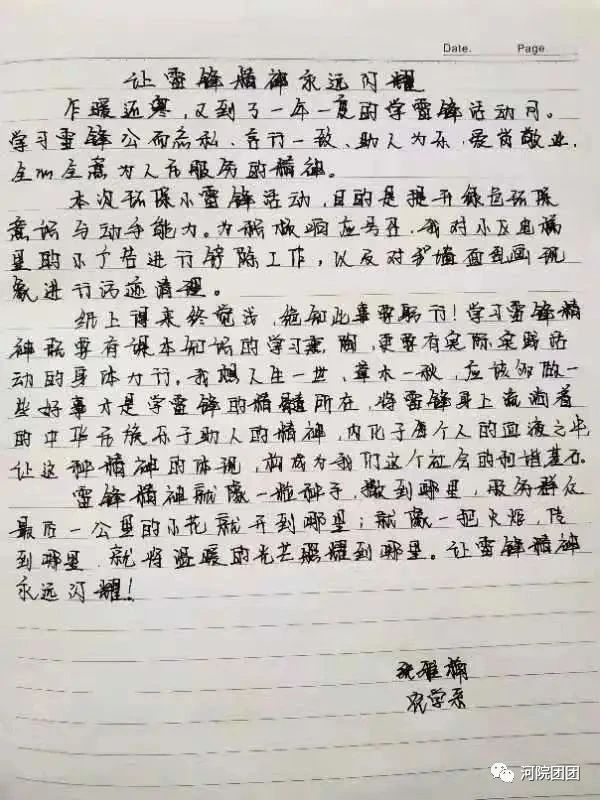 Date. Page.
让雷锋精神永远闪耀
乍暖还寒，又到了一年一度的学雷锋活动月。
学习雷锋公而忘私、言行一致、助人为乐，爱岗敬业，
全心全意为人民服务的精神。
本次环保小雷锋活动，目的是提升绿色环保
意识与动手能力。为积极响应号召，我对小区电梯
里的小广告进行清除工作，以及对墙面乱画现
象进行污迹清理。
纸上得来终觉浅，绝知此事要躬行！学习雷锋精
神既要有课本知识的学习，更要有实际实践活
动的身体力行。我想人生一世，草木一秋，应该多做一
些好事才是学雷锋的精髓所在，将雷锋身上流淌着
的中华民族乐于助人的精神，内化于每个人的血液之中
让这种精神的体现，构成为我们这个社会的和谐基石。
雷锋精神就像一粒种子，撒到哪里，服务群众
最后一公里的小花就开到哪里；就像一把火炬，传
到哪里，就将温暖的光芒照耀到哪里。让雷锋精神
永远闪耀！
农学系
河院团团